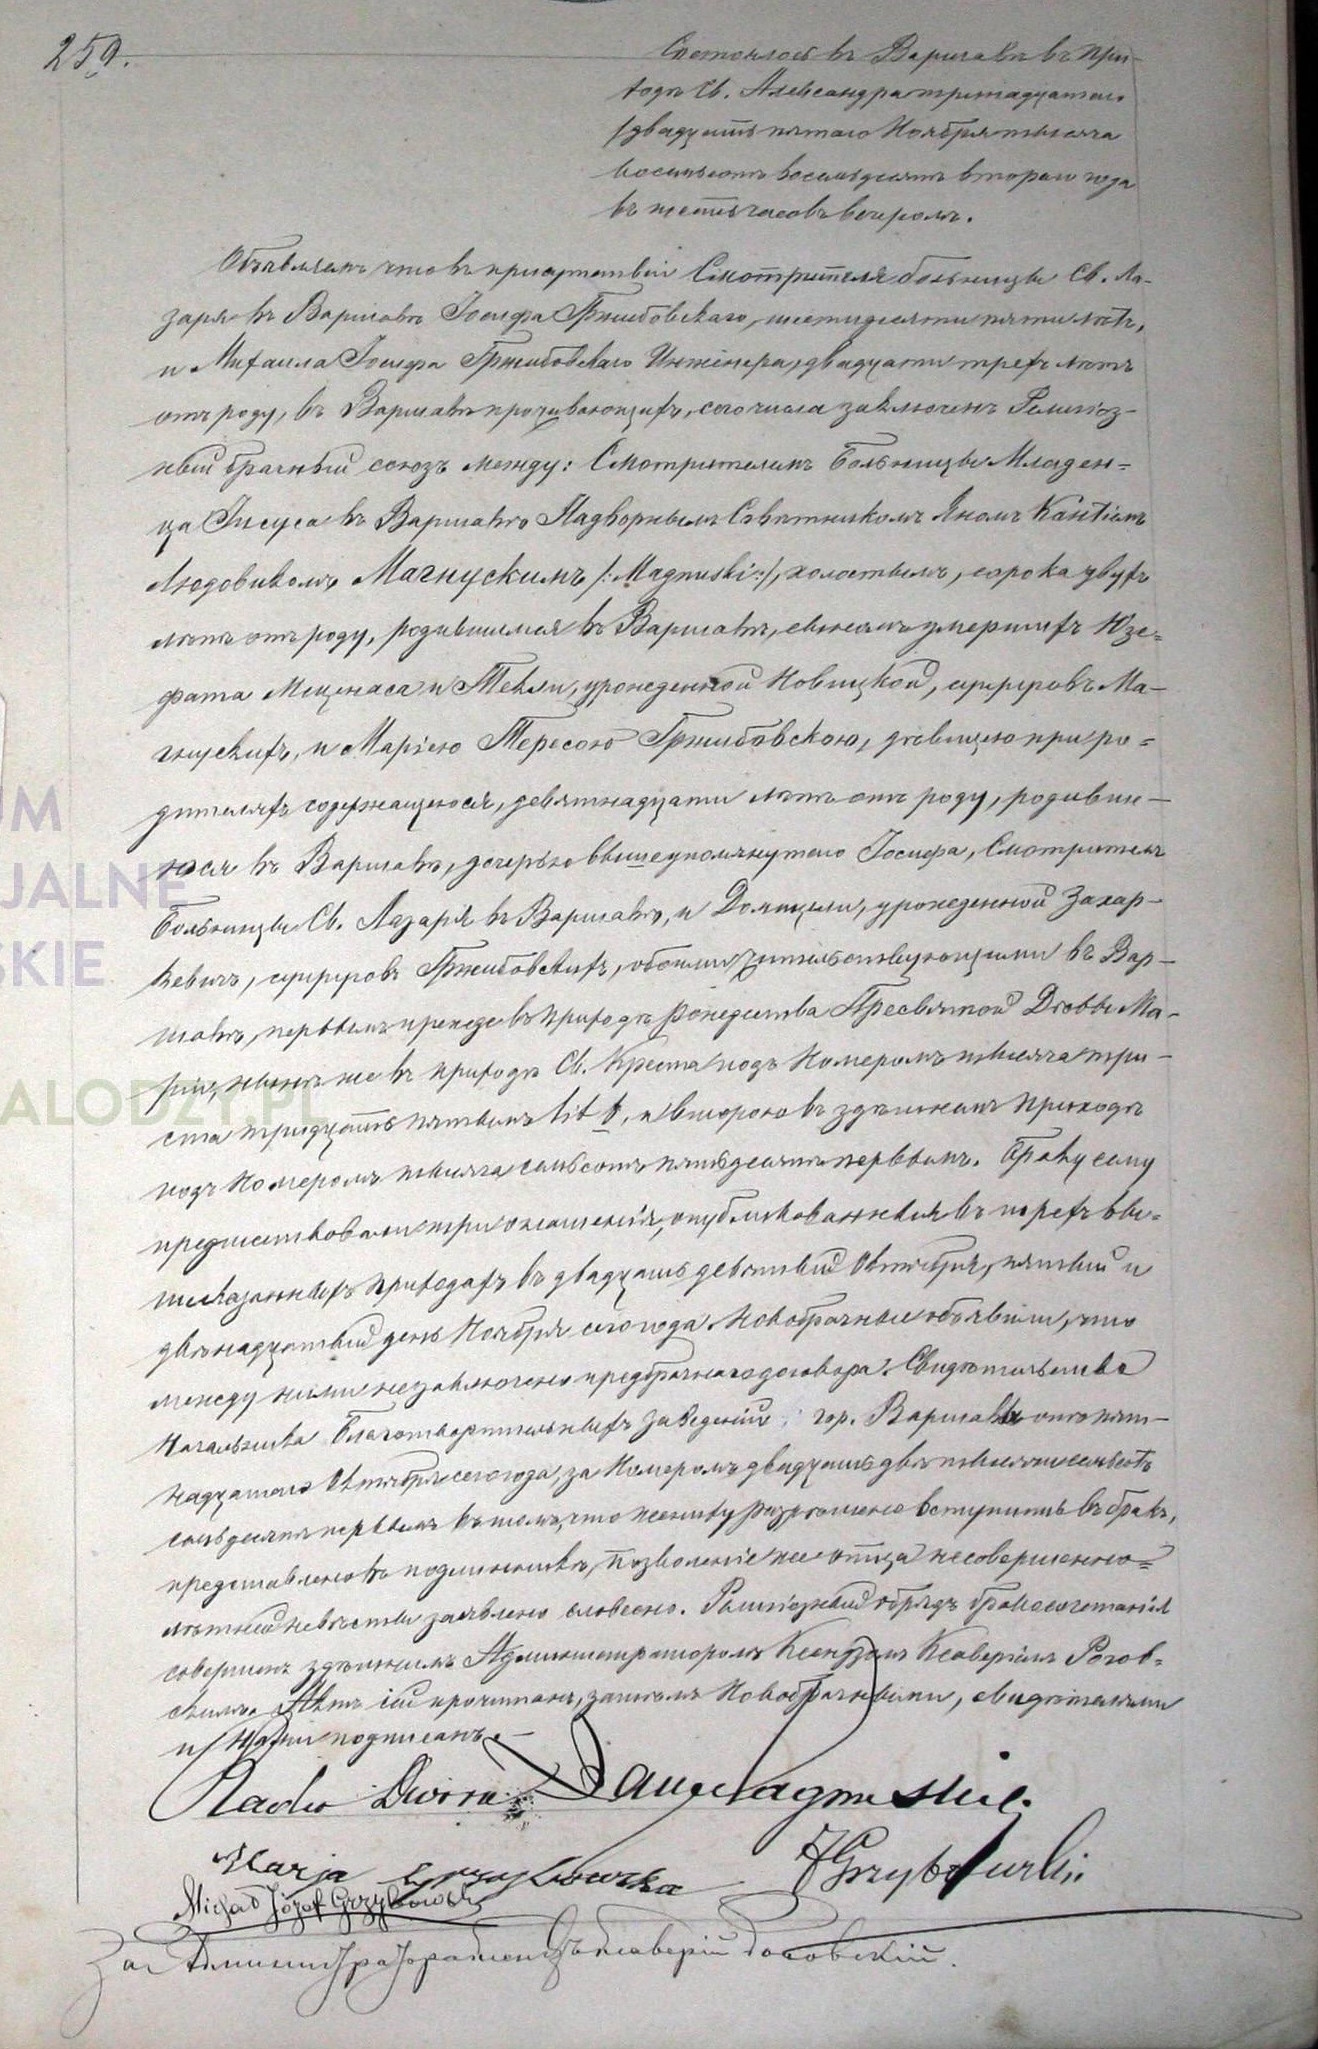 259.
Состоялось въ Варшавѣ въ при-
ходѣ Св. Александра тринадцатаго
/двадцать пятаго Ноября тысяча
восемьсотъ восемьдесятъ втораго года
въ шесть часовъ вечеромъ.
Объявляемъ что въ присутствіи Смотрителя больницы Св. Ла-
заря въ Варшавѣ Іосифа Гржибовскаго, шестидесяти пяти лѣтъ,
и Михаила Іосифа Гржибовскаго Инженера, двадцати трехъ лѣтъ
отъ роду, въ Варшавѣ проживающихъ, сего числа заключенъ Религіоз-
ный брачный союзъ между: Смотрителемъ Больницы Младен-
ца Іисуса въ Варшавѣ Надворнымъ Совѣтникомъ Яномъ Кантіемъ
Людовикомъ Магнускимъ /:Magnuski:/, холостымъ, сорока двухъ
лѣтъ отъ роду, родившимся въ Варшавѣ, сыномъ умершихъ Юзе-
фата Меценаса и Текли, урожденной Новицкой, супруговъ Ма-
гнускихъ, и Маріею Тересою Гржибовскою, дѣвицею при ро-
дителяхъ содержащеюся, девятнадцати лѣтъ отъ роду, родивш-
юся въ Варшавѣ, дочерью вышеупомянутаго Іосифа, Смотрителя
Больницы Св. Лазаря въ Варшавѣ, и Домицели, урожденной Захар-
кевичъ, супруговъ Гржибовскихъ, обоими жительствующими въ Вар-
шавѣ, первымъ прежде въ приходѣ Рождества Пресвятой Дѣвы Ма-
ріи, нынѣ же въ приходѣ Св. Креста подъ Номеромъ тысяча три-
ста тридцать пятымъ lit b, и второю въ здѣшнемъ приходѣ
подъ Номеромъ тысяча семьсотъ пятьдесятъ первымъ. Браку сему
предшествовали три оглашенія, опубликованныя въ трехъ вы-
шесказанныхъ приходахъ въ двадцать девятый Октября, пятый и
двѣнадцатый день Ноября сего года. Новобрачные объявили, что
между ними не заключено предбрачнаго договора. Свидѣтельство
Начальника Благотворительныхъ Заведеній гор. Варшавы отъ пят-
надцатаго Октября сего года, за Номеромъ двадцать двѣ тысячи семьсотъ
семьдесятъ первымъ въ томъ, что жениху разрѣшено вступить въ бракъ,
представлено въ подлинникѣ, позволеніе же отца несовершенно-
лѣтней невѣсты заявлено словесно. Религіозный обрядъ бракосочетанія
совершенъ здѣшнимъ Администраторомъ Ксендзомъ Ксаверіемъ Рогов-
скимъ. Актъ сей прочитанъ, затѣмъ Новобрачными, свидѣтелями
и Нами подписанъ.
Radca Dworu Jan Magnuski.
Marja Grzybowska JGrzybowski
Michał Józef Grzybowski
За Администратора Ксендзъ Ксаверій Роговскій.
UM
JALNE
SKIE
ALODZY.PL